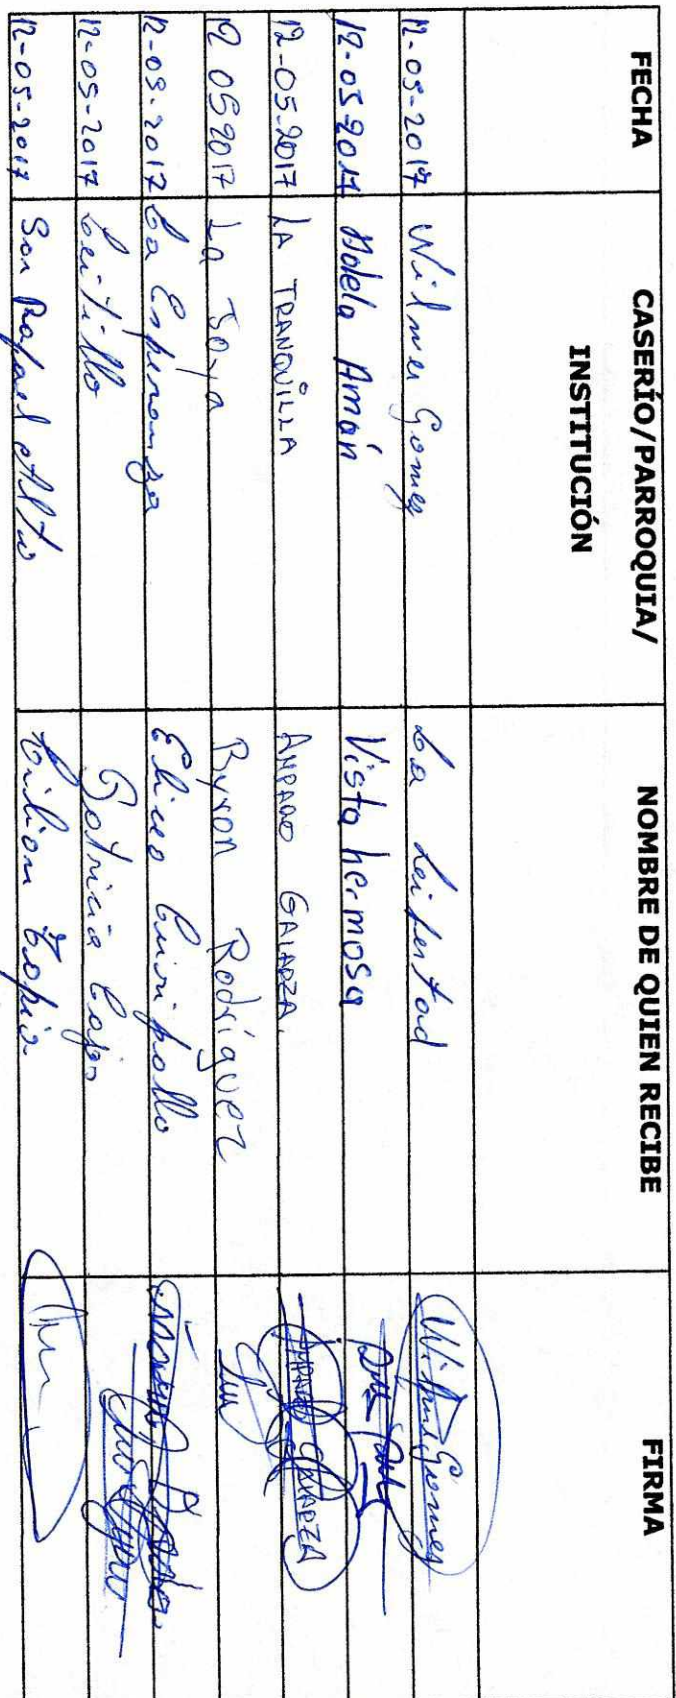 FECHA CASERÍO/PARROQUIA/ NOMBRE DE QUIEN RECIBE FIRMA
INSTITUCIÓN
12-05-2017 Wilmer Gomez La Leibertad Wilmer Gomez
12-05-2017 Adela Amán Vista hermosa
12-05-2017 LA TRANQUILLA AMPARO GALARZA. AMPARO GALARZA
12 05 2017 La Joya Byron Rodríguez
12-05-2017 La Esperanza Eliceo
12-05-2017 Patricia
12-05-2017 San Rafael Alto Lilian Tapia